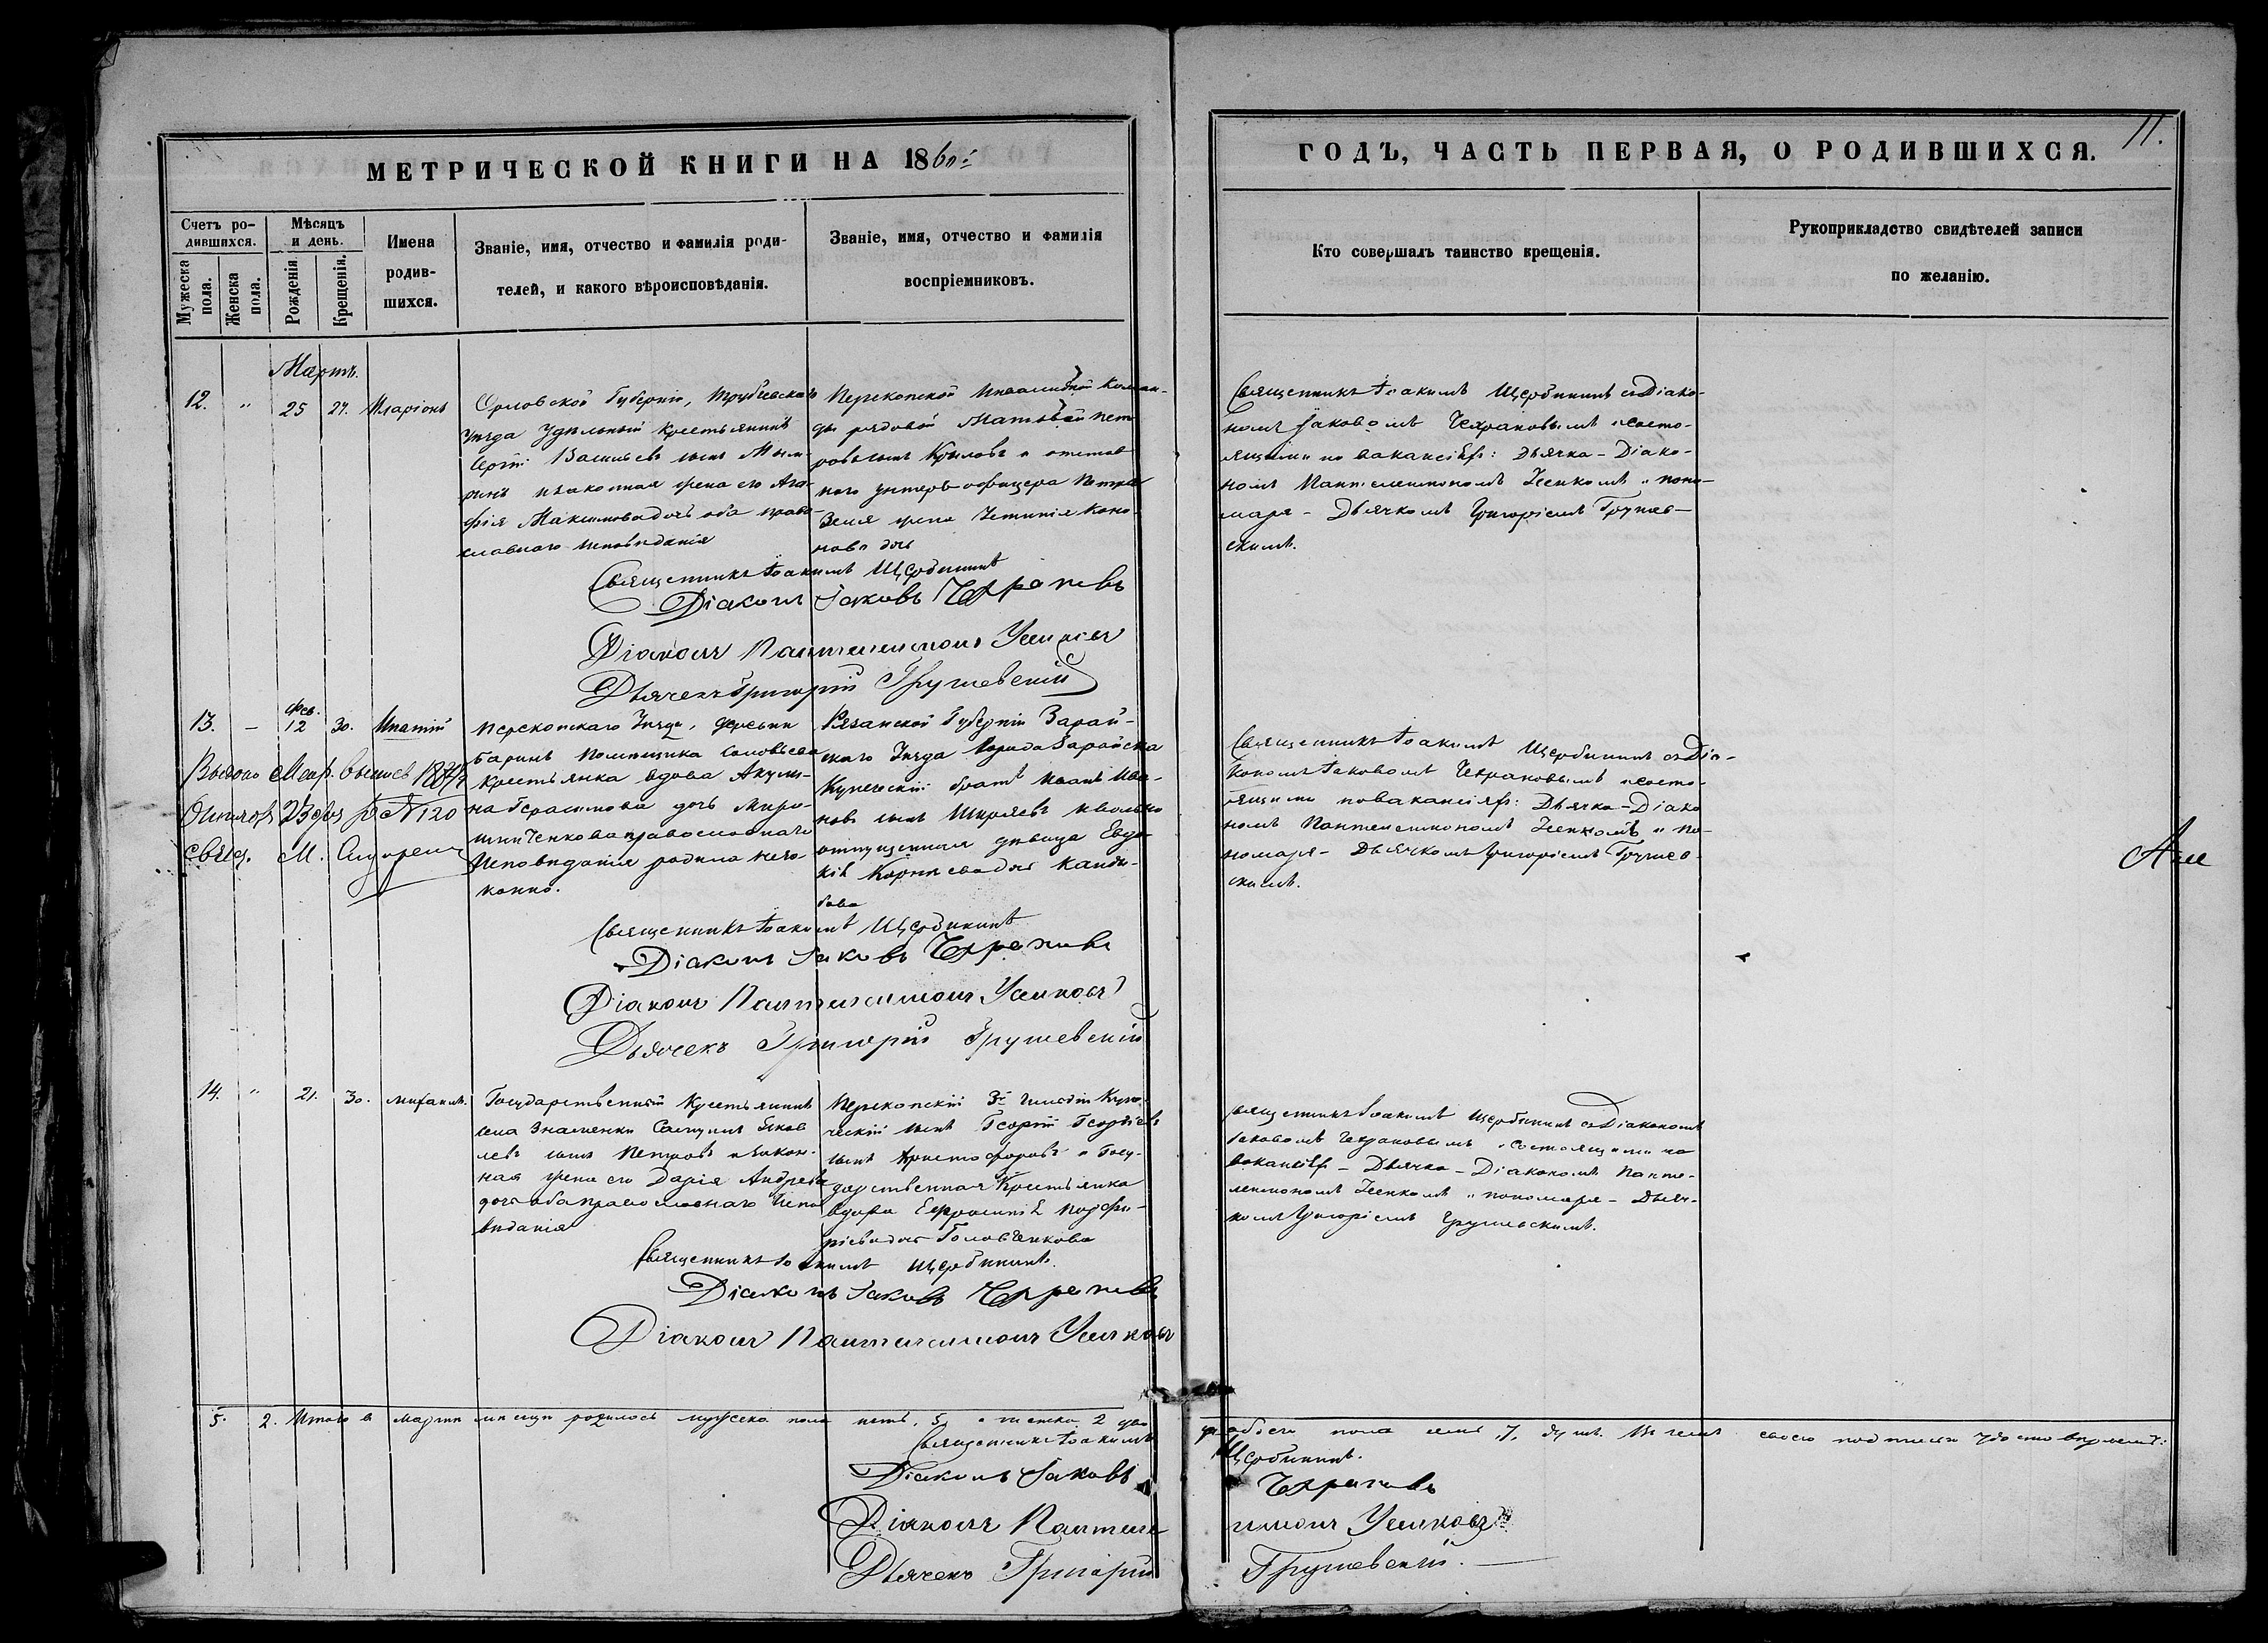 МЕТРИЧЕСКОЙ КНИГИ НА 1860й
ГОДЪ, ЧАСТЬ ПЕРВАЯ, О РОДИВШИХСЯ.
11.
Счетъ ро-
дившихся.
Мужеска
пола.
Женска
пола.
Мѣсяцъ
и день.
Рожденія
Крещенія.
Имена
родив-
шихся.
Званіе, имя, отчество и фамилія роди-
телей, и какого вѣроисповѣданія.
Званіе, имя, отчество и фамилія
воспріемниковъ.
Кто совершалъ таинство крещенія.
Рукоприкладство свидѣтелей записи
по желанію.
Мартъ.
12. " 25 27. Иларіонъ
Орловской Губерніи, Трубчевскаго
уѣзда Удѣльный крестьянинъ
Васильевъ сынъ
законная жена его Ага-
фія Максимова дочь оба право-
славнаго исповѣданія
Перекопской Инвалидной Коман-
ды рядовой Матвѣй Пет-
ровъ сынъ Крыловъ и отстав-
наго унтеръ-офицера Петра
жена Коно-
нова дочь
Священникъ Іоакимъ Щербининъ съ Діако-
номъ Іаковомъ Чехрановымъ и состо-
ящими по вакансіяхъ: Дьячка - Діако-
номъ Пантелеимономъ и поно-
маря - Дьячкомъ Григоріемъ Грушев-
скимъ.
Священникъ Іоакимъ Щербининъ
Діаконъ Іаковъ Чехрановъ
Діаконъ Пантелеимонъ
Дьячекъ Григорій Грушевскій
13. - Фев. 12 30. Ипатій
Перекопскаго Уѣзда, деревни
Баринъ Помѣщика Соловьева
крестьянка вдова Акули-
на Герасимова дочь Миро-
шниченкова православнаго
исповѣданія родила неза-
конно.
Рязанской Губерніи Зарай-
скаго Уѣзда Города Зарайска
Купеческій братъ Иванъ Ива-
новъ сынъ Ширяевъ и вольно
отпущенная дѣвица Евдо-
кія Корнѣева дочь Канды-
бова
Священникъ Іоакимъ Щербининъ съ Діа-
кономъ Іаковомъ Чехрановымъ и состо-
ящими по вакансіяхъ: Дьячка - Діако
номъ Пантелеимономъ и по-
номаря - Дьячкомъ Григоріемъ Грушев-
скимъ.
Выдано Метр. выпись
23 № 120
свящ. М.
Священникъ Іоакимъ Щербининъ
Діаконъ Іаковъ Чехрановъ
Діаконъ Пантелеимонъ
Дьячекъ Григорій Грушевскій
14. " 21. 30. Михаилъ.
Государственный Крестьянинъ
села Знаменки Самуилъ Яков
левъ сынъ Петровъ и закон-
ная жена его Дарія Андреева
дочь оба православнаго Испо
вѣданія
Перекопскій 3й Гильдіи Купе-
ческій сынъ Георгій Георгіевъ
сынъ Христофоровъ и Госу-
дарственная Крестьянка
вдова Евфросинія Порфи-
ріева дочь Головченкова
Священникъ Іоакимъ Щербининъ съ Діакономъ
Іаковомъ Чехрановымъ и состоящими по
вакансіяхъ - Дьячка - Діакономъ Панте-
леимономъ и пономаря - Дьяч-
комъ Григоріемъ Грушевскимъ.
Священникъ Іоакимъ Щербининъ.
Діаконъ Іаковъ Чехрановъ
Діаконъ Пантелеимонъ
5. 2. Итого въ мартѣ мѣсяцѣ родилось мужеска пола пять, 5, и женска 2 два
обоего пола семь, 7, душъ. Въ чемъ своею подписью удостовѣряемъ:
Священникъ Іоакимъ Щербининъ.
Діаконъ Іаковъ Чехрановъ
Діаконъ Пантелеимонъ
Дьячекъ Григорій Грушевскій.